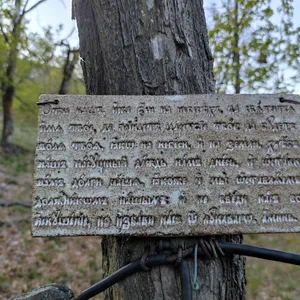 Отче нашъ, иже еси на небесѣхъ, да святится
имя твое, да приидетъ царствіе твое, да будетъ
воля твоя, яко на небеси, и на земли, хлѣбъ
нашъ насущный даждь намъ днесь, и остави
намъ долги наша, якоже и мы оставляемъ
должникомъ нашымъ, и не введи насъ во
искушеніе, но избави насъ от лукавагω, аминь